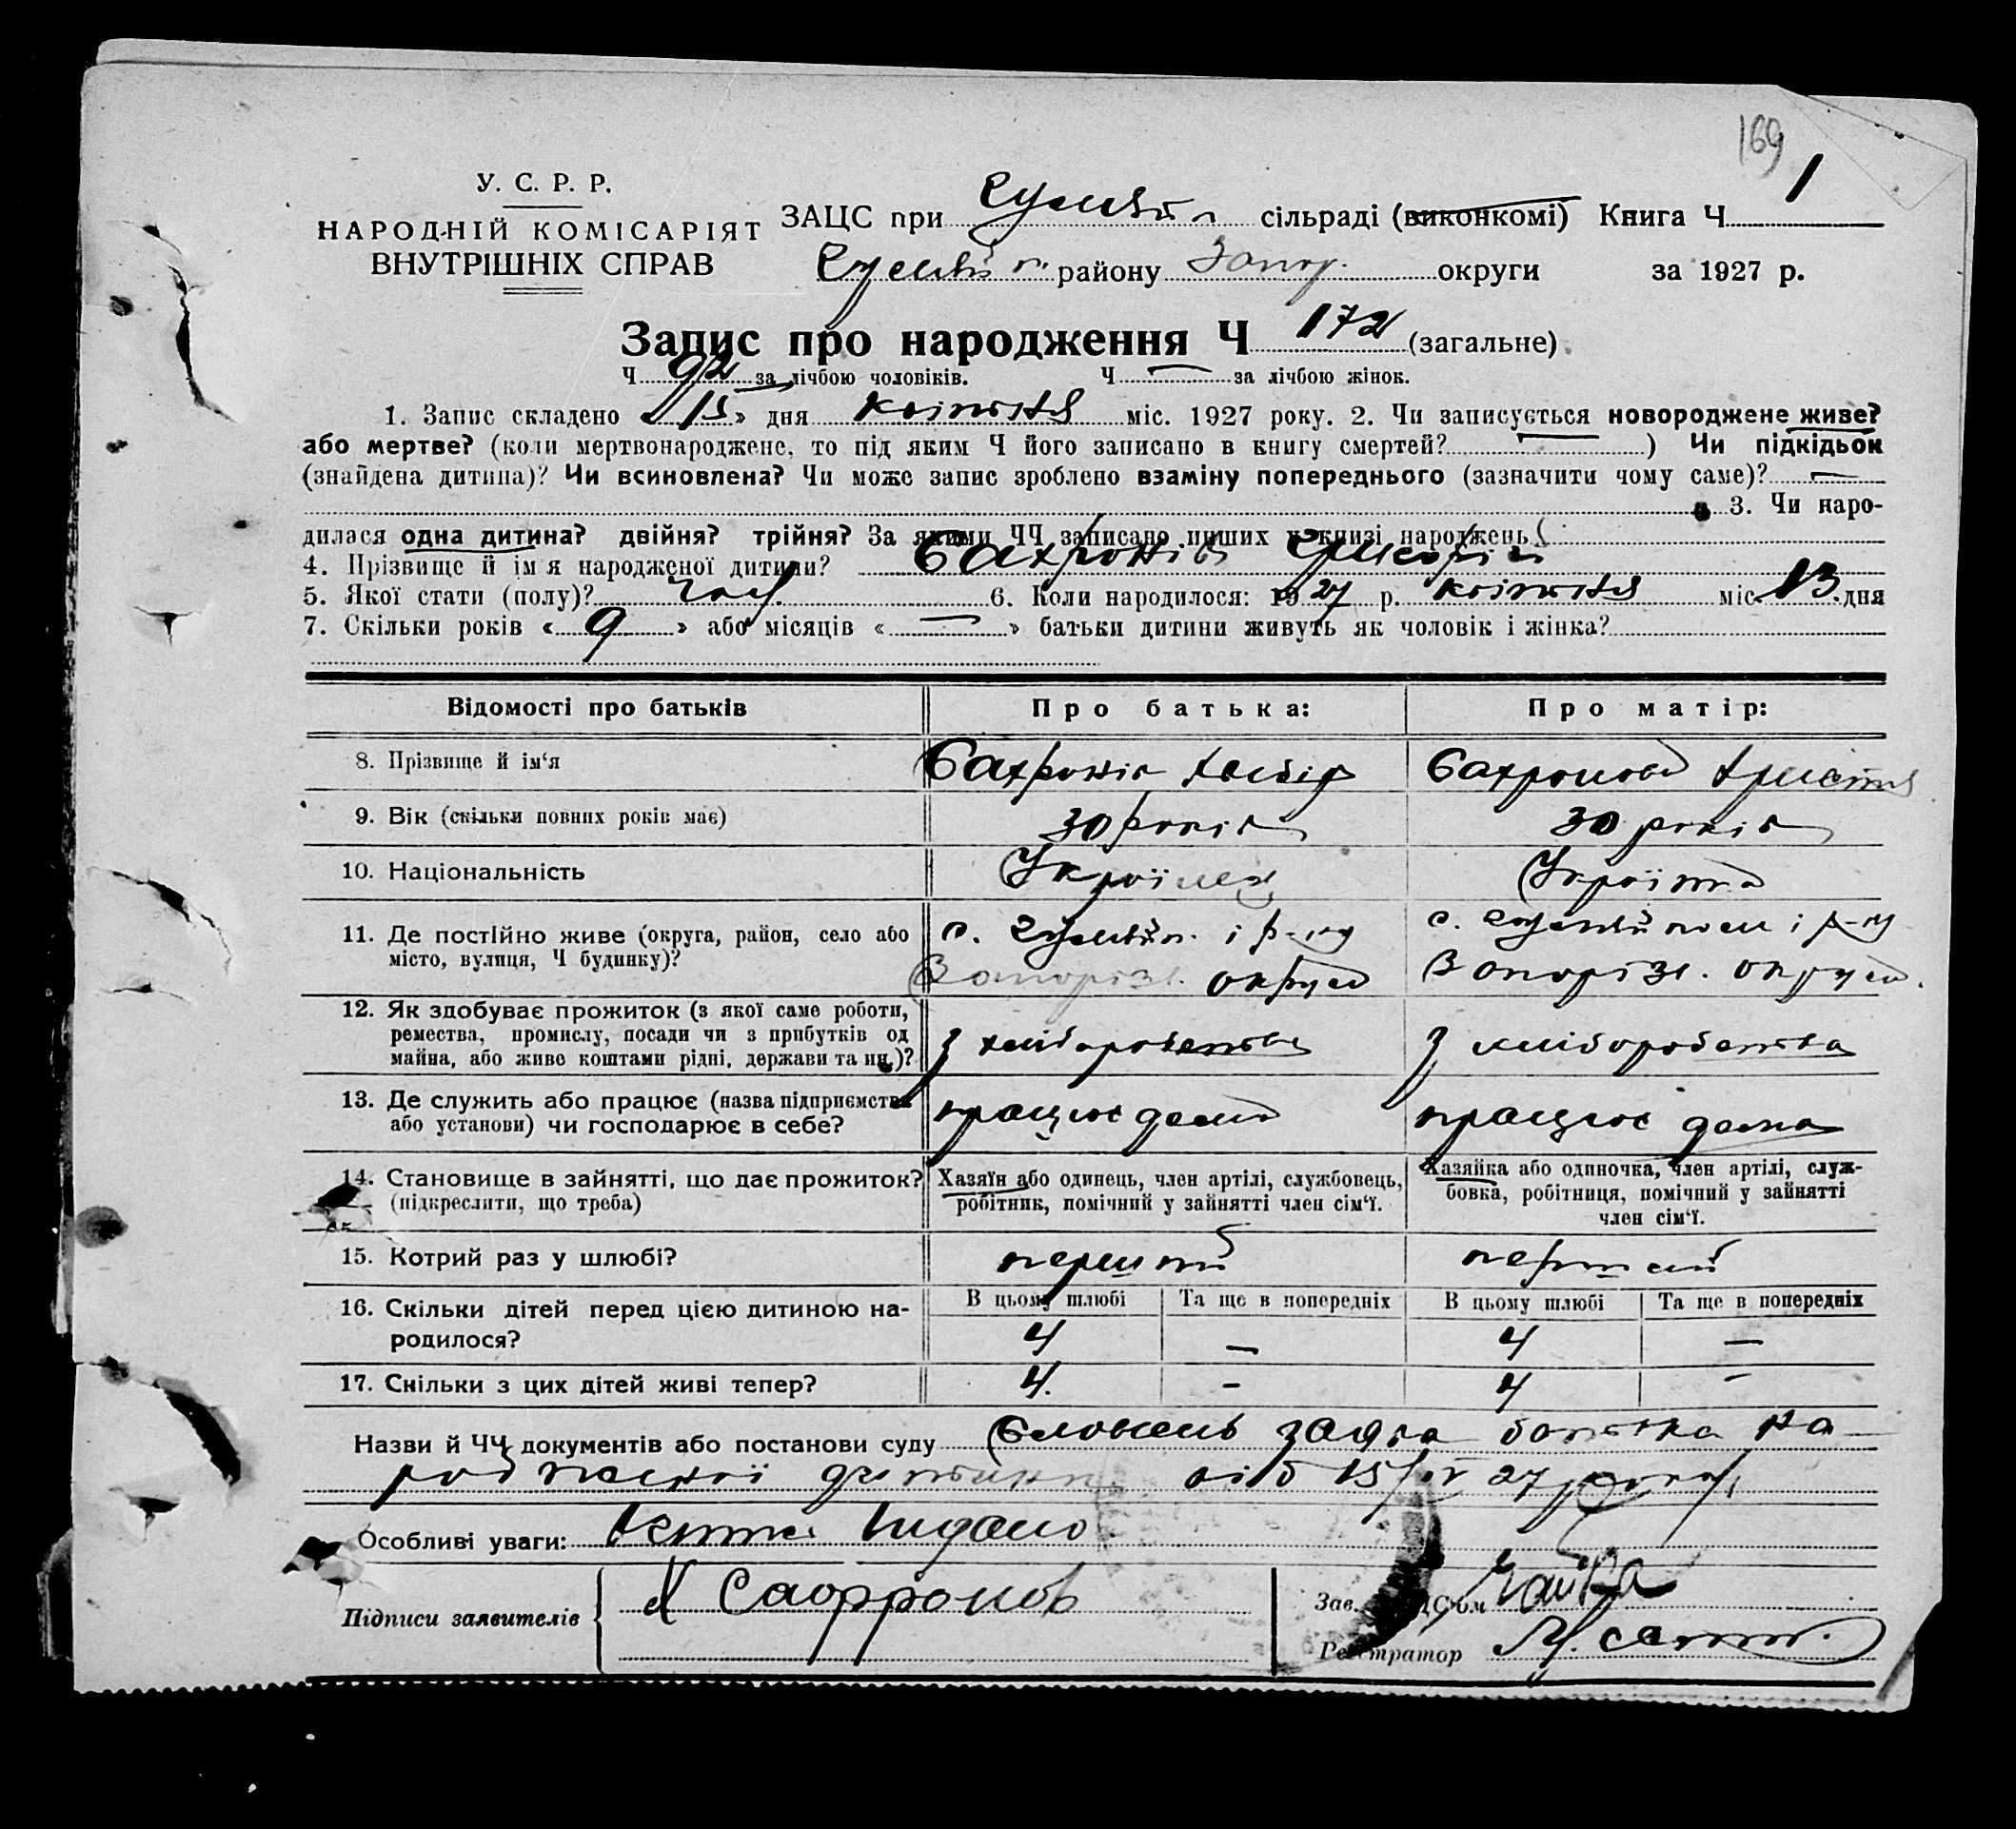 169
У. С. Р. Р.
НАРОДНІЙ КОМІСАРІЯТ
ВНУТРІШНІХ СПРАВ
ЗАЦС при Гуляйп сільраді (виконкомі) Книга Ч 1
Гуляйп. району Запор. округи за 1927 р.
Запис про народження Ч 172 (загальне)
Ч 92 за лічбою чоловіків. Ч — за лічбою жінок.
1. Запис складено «15» дня квітня міс. 1927 року. 2. Чи записується новороджене живе?
або мертве? (коли мертвонароджене, то під яким Ч його записано в книгу смертей? — ) Чи підкідьок
(знайдена дитина)? Чи всиновлена? Чи може запис зроблено взаміну попереднього (зазначити чому саме)? —
3. Чи наро-
дилася одна дитина? двійня? трійня? За якими ЧЧ записано инших у книзі народжень
4. Прізвище й ім'я народженої дитини? Сахронів Григорій
5. Якої стати (полу)? чол. 6. Коли народилося: 1927 р. квітня міс. 13 дня
7. Скільки років «9» або місяців «—» батьки дитини живуть як чоловік і жінка?
Відомості про батьків Про батька: Про матір:
8. Прізвище й ім'я Сахронів Сахронова Христя
9. Вік (скільки повних років має) 30 років 30 років
10. Національність Українец Українка
11. Де постійно живе (округа, район, село або місто, вулиця, Ч будинку)? с. Гуляйп. і р-ну Запоріз. округи с. Гуляйполе і р-ну Запоріз. округи.
12. Як здобуває прожиток (з якої саме роботи, ремества, промислу, посади чи з прибутків од майна, або живе коштами рідні, держави та ин.)? З хліборобства З хліборобства
13. Де служить або працює (назва підприємства або установи) чи господарює в себе? працює дома працює дома
14. Становище в зайнятті, що дає прожиток? (підкреслити, що треба) Хазяїн або одинець, член артілі, службовець, робітник, помічний у зайнятті член сім'ї. Хазяйка або одиночка, член артілі, служ-бовка, робітниця, помічний у зайнятті член сім'ї.
15. Котрий раз у шлюбі? перший перший
16. Скільки дітей перед цією дитиною на-родилося? В цьому шлюбі Та ще в попередніх В цьому шлюбі Та ще в попередніх
4 — 4 —
17. Скільки з цих дітей живі тепер? 4. - 4 -
Назви й ЧЧ документів або постанови суду Словесь заява батька на
дитини від 15/IV 27 року
Особливі уваги:
Підписи заявителів Х Саффронов Зав. ЗАЦС'ом Чайка
Реєстратор